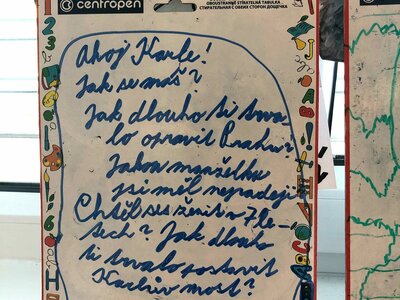 centropen
OBOUSTRANNĚ STÍRATELNÁ TABULKA
СТИРАТЕЛЬНАЯ С ОБЕИХ СТОРОН ДОЩЕЧКА
Ahoj Karle!
Jak se máš?
Jak dlouho ti trva-
lo opravit Prahu?
Jakou manželku
jsi měl nejradši
Chtěl ses ženit v 7 le-
tech? Jak dlouho
ti trvalo postavit
Karlův most?